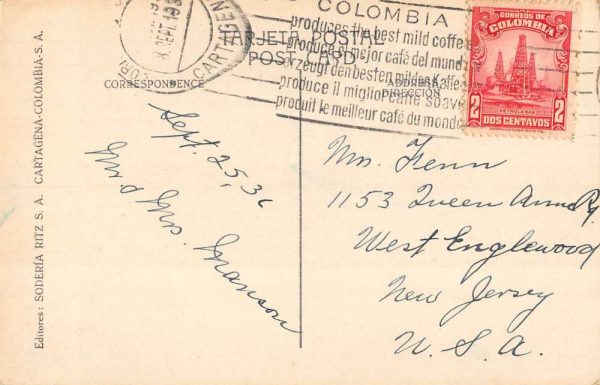 COLOMBIA
produces the best mild coffee
produce el mejor café del mundo
erzeugt den besten milden Kaffee
produce il miglior caffe soave
produit le meilleur café du monde
CARTAGEN
TARJETA POSTAL
POST CARD
CORRESPONDENCE
ADDRESS
DIRECCIÓN
CORREOS DE
COLOMBIA
PETROLEROS
2 2
DOS CENTAVOS
Sept. 25, 36
Mr & Mrs. Manson
Mrs. Fenn
1153 Queen Anne Rd.
West Englewood
New Jersey
U. S. A.
Editores: SODERÍA RITZ S. A. CARTAGENA-COLOMBIA-S. A.